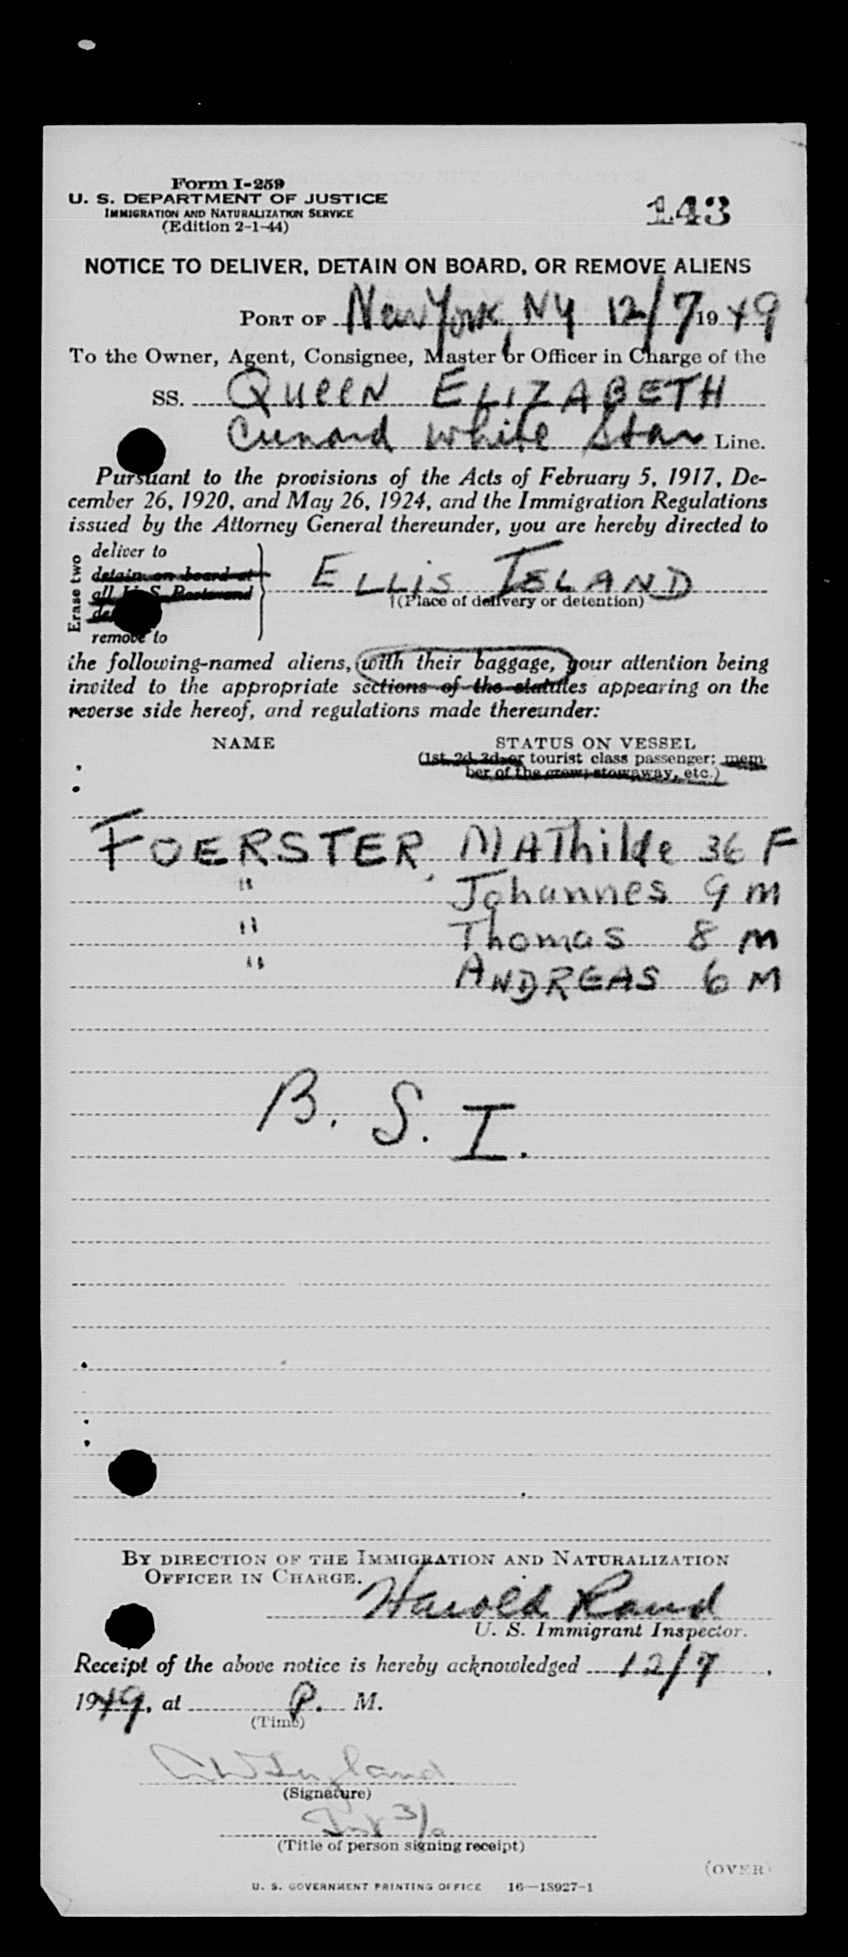 Form I-259
U. S. DEPARTMENT OF JUSTICE
IMMIGRATION AND NATURALIZATION SERVICE
(Edition 2-1-44)
143
NOTICE TO DELIVER, DETAIN ON BOARD, OR REMOVE ALIENS
PORT OF New York, NY 12/7 1949
To the Owner, Agent, Consignee, Master or Officer in Charge of the
SS. QUEEN ELIZABETH
Cunard White Star Line.
Pursuant to the provisions of the Acts of February 5, 1917, De-
cember 26, 1920, and May 26, 1924, and the Immigration Regulations
issued by the Attorney General thereunder, you are hereby directed to
Erase two
deliver to
detain on board at
all U. S. Ports and
remove to
ELLIS ISLAND
(Place of delivery or detention)
the following-named aliens, with their baggage, your attention being
invited to the appropriate sections of the statutes appearing on the
reverse side hereof, and regulations made thereunder:
NAME STATUS ON VESSEL
(1st, 2d, 3d, or tourist class passenger; mem-
ber of the crew, stowaway, etc.)
FOERSTER, MAThilde 36 F
" Johannes 9 M
" Thomas 8 M
" ANDREAS 6 M
B. S. I.
BY DIRECTION OF THE IMMIGRATION AND NATURALIZATION
OFFICER IN CHARGE.
Harold Rand
U. S. Immigrant Inspector.
Receipt of the above notice is hereby acknowledged 12/7,
1949, at P. M.
(Time)
(Signature)
3/o
(Title of person signing receipt)
(OVER)
U. S. GOVERNMENT PRINTING OFFICE 16—18927-1